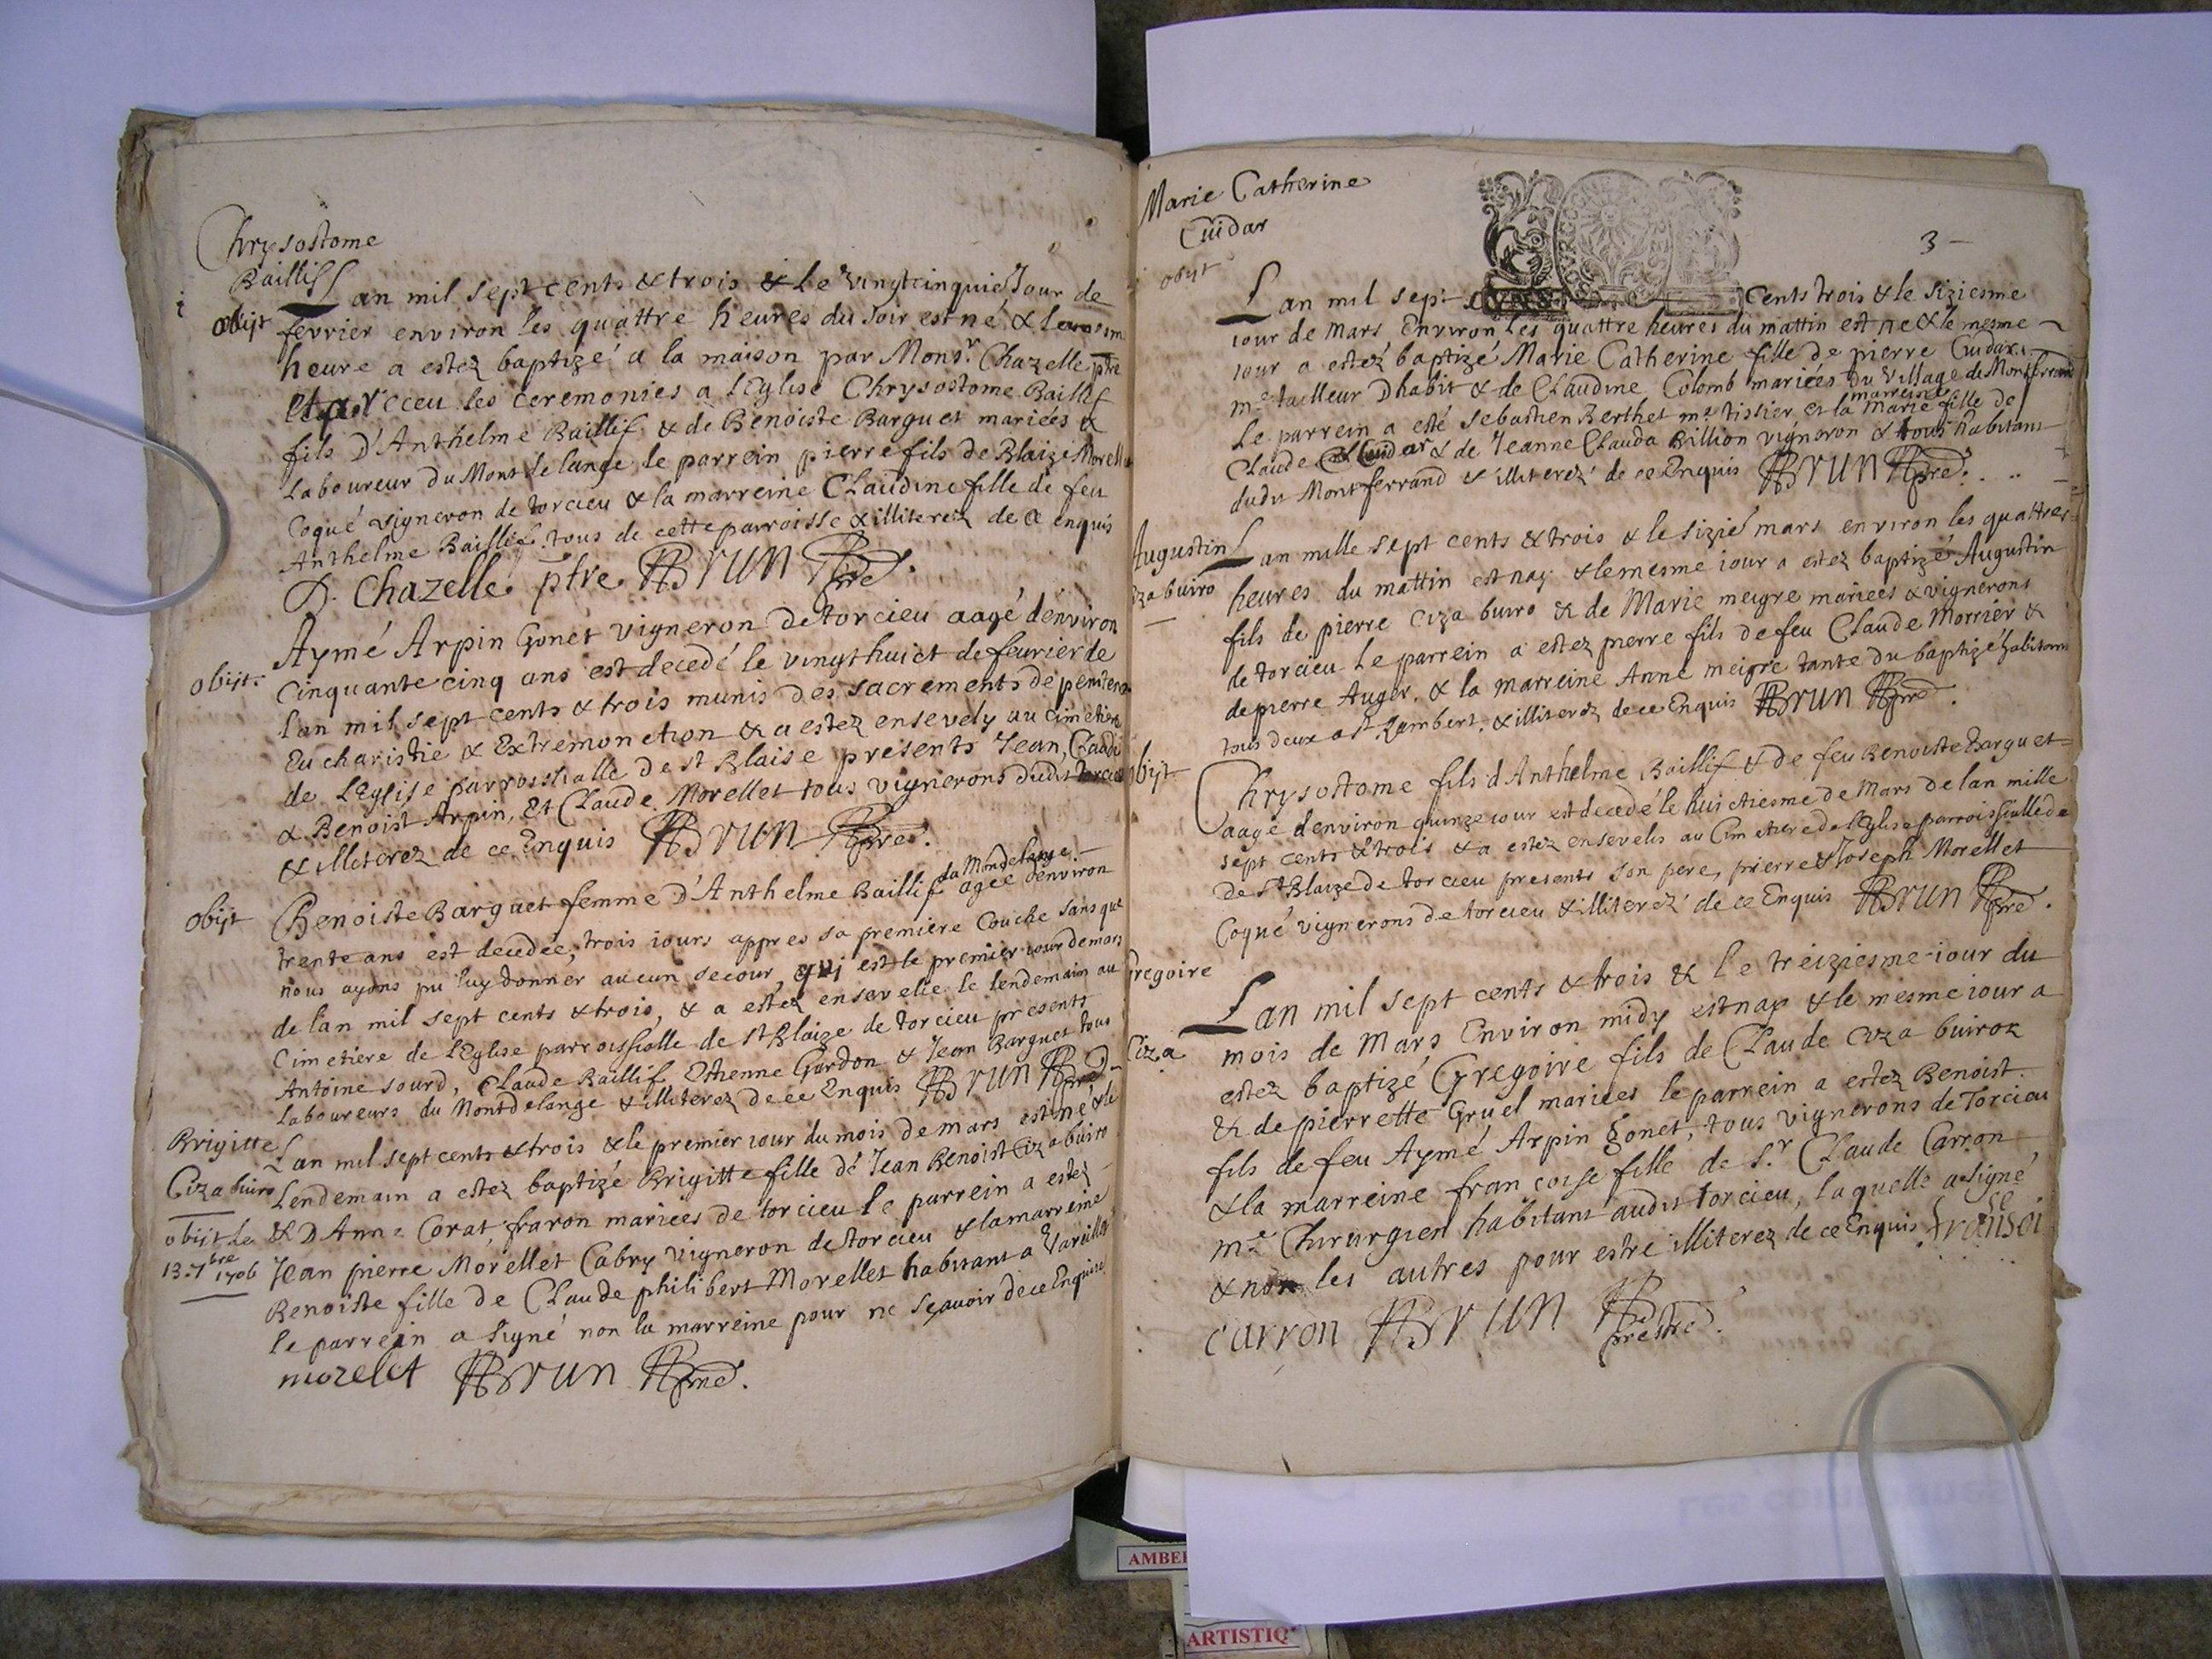 Chrysostome
Baillif
obijt
Lan mil sept cents & trois & le vingtcinquie Jour de
fevrier environ les quattre heures du soir est né & le mesm
heure a estez baptizé a la maison par Monsr. Chazelle ptre
et a receu les ceremonies a lEglise Chrysostome Baillif
fils D'Anthelme Baillif & de Benoiste Barguet mariées &
Laboureur du Mont de lange, le parrein pierre fils de Blaize Morelle
Coqué vigneron de torcieu & la marreine Claudine fille de feu
Anthelme Baillif tous de cette parroisse & illiterez de ce enquis
D. Chazelle ptre. Brun pre.
obijt.
Aymé Arpin Gonet vigneron de torcieu aagé denviron
Cinquante cinq ans est decedé le vingthuict de feurier de
lan mil sept cents & trois munis des sacrements de penitence
Eucharistie & Extremonction & a estez ensevely au cimetiere
de lEglise parrossialle de st Blaise presents Jean, Claude
& Benoist Arpin, et Claude Morellet tous vignerons dudit torcieu
& illiterez de ce Enquis Brun pre.
obijt
du Mondelange.
Benoiste Barguet femme D'Anthelme Baillif agée denviron
trente ans est decedée, trois iours appres sa premiere Couche sans que
nous ayons pu luy donner aucun secour, qui est le premier iour de mars
de lan mil sept cents & trois, & a estez ensevelie le lendemain au
Cimetiere de lEglise parroissialle de st Blaize de torcieu presents
Antoine sourd, Claude Baillif Etienne Gardon & Jean Barguet tous
Laboureurs du Montdelange & illiterez de ce Enquis Brun pre
Brigitte
Ciza buiro
obijt le
13. 7bre 1706
Lan mil sept cents & trois & le premier iour du mois de mars est né & le
Lendemain a estez baptizé Brigitte fille de Jean Benoist Ciza buiro
& D Anne Corat, fraron mariees de torcieu le parrein a estez
Jean pierre Morellet Cabry vigneron de torcieu & la marreine
Benoiste fille de Claude philibert Morellet habitant a Vareille
le parrein a signé non la marreine pour ne sçauoir de ce Enquise
morelet Brun pre.
Marie Catherine
Cuidar
obijt
3
Lan mil sept Cents trois & le siziesme
iour de Mars Environ les quattre heures du mattin est ne & le mesme
iour a estez baptizé Marie Catherine fille de pierre Cuidar
me tailleur Dhabit & de Claudine Colomb mariées du village de Montferrand
marreine
Le parrein a esté sebastien Berthet me tissier et la Marie fille de
Claude Cuidar & de Jeanne Clauda Billion vigneron & tous habitans
dudit Montferrand & illiterez de ce Enquis Brun pre.
Augustin
Ciza buiro
Lan mille sept cents & trois & le sizié mars environ les quattres
heures du mattin est nay & le mesme iour a estez baptizé Augustin
fils de pierre Ciza buiro & de Marie meigre mariees & vignerons
de torcieu Le parrein a estez pierre fils de feu Claude Morrier &
de pierre Auger, & la marreine Anne meigre tante du baptizé habitans
tous deux a st Rambert, & illiterez de ce Enquis Brun pre.
obijt
Chrysostome fils d Anthelme Baillif & de feu Benoiste Barguet
aagé denviron quinze iour est decedé le huictiesme de Mars de lan mille
sept cents & trois & a estez ensevelis au Cimetiere de lEglise parroissialle de
de St Blaize de torcieu presents son pere, pierre & Joseph Morellet
Coqué vignerons de torcieu & illiterez de ce Enquis Brun pre.
Gregoire
Ciza
Lan mil sept cents & trois & le treiziesme iour du
mois de Mars Environ midy est nay & le mesme iour a
estez baptizé Gregoire fils de Claude Ciza buiroz
& de pierrette Gruel mariees le parrein a estez Benoist
fils de feu Aymé Arpin gonet, tous vignerons de Torcieu
& la marreine francoise fille de sr. Claude Carron
me Chirurgien habitant audit torcieu, laquelle a signé
& non les autres pour estre illiterez de ce Enquis fransoi
carron Brun prestre.
AMBE
ARTISTIQ